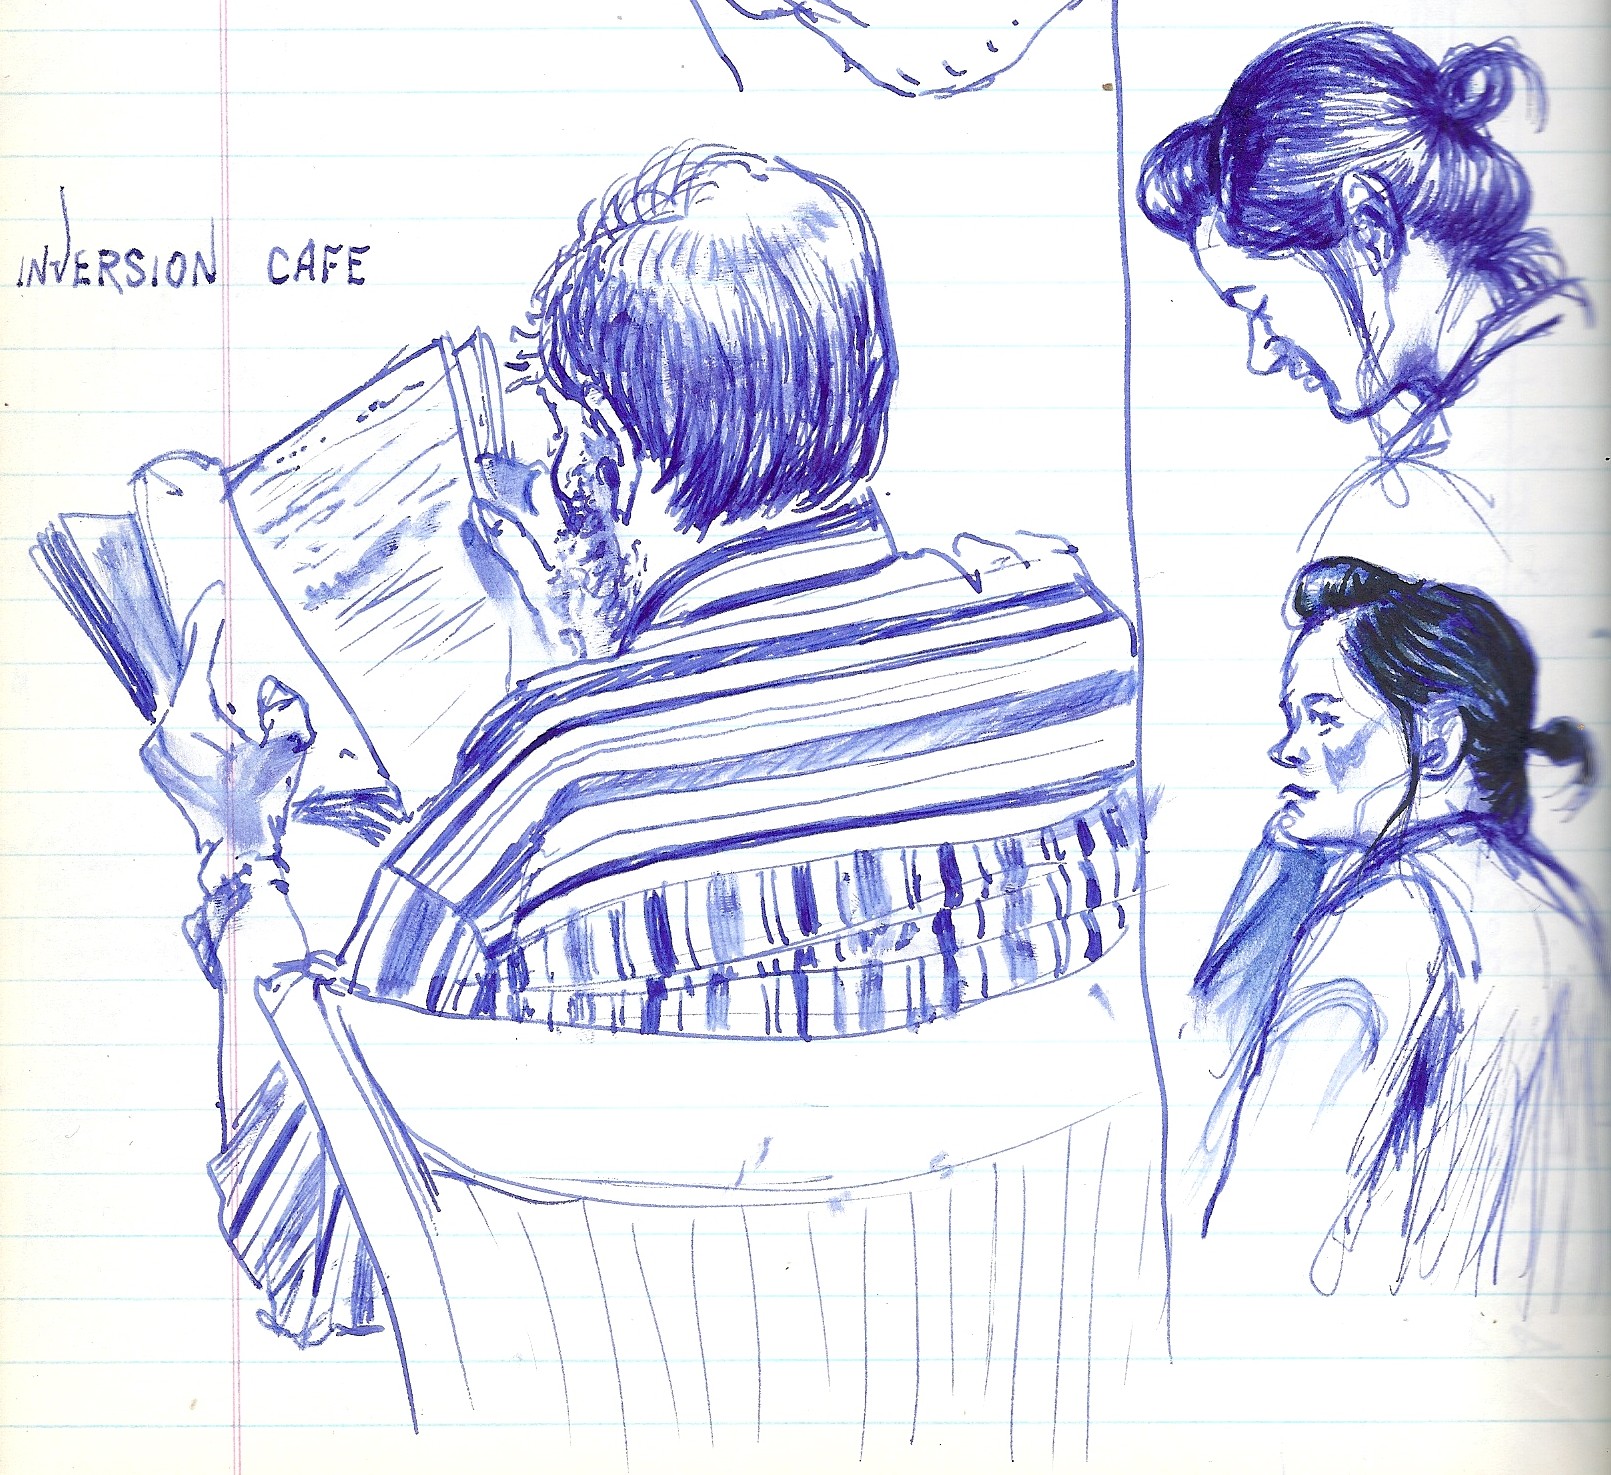 INVERSION CAFE